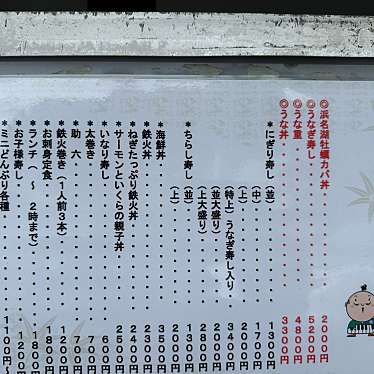 ◎浜名湖牡蠣カバ丼・・・2000円
◎うなぎ寿し・・・・・・5200円
◎うな重・・・・・・・・4800円
◎うな丼・・・・・・・・3300円
*にぎり寿し(並)・・・・1300円
(中)・・・・1700円
(上)・・・・2000円
(特上)うなぎ寿し入り 3400円
(並大盛り)・・・・2000円
(上大盛り)・・・・2800円
*ちらし寿し(並)・・・・1300円
(上)・・・・2000円
*海鮮丼・・・・・・・・3500円
*鉄火丼・・・・・・・・2300円
*ねぎたっぷり鉄火丼・・・2400円
*サーモンといくらの親子丼・2500円
*いなり寿し・・・・・・600円
*太巻き・・・・・・・・700円
*助六・・・・・・・・・700円
*鉄火巻き(1人前3本)・・1200円
*お刺身定食・・・・・・1800円
*ランチ(〜2時まで)・・1800円
*お子様寿し・・・・・・1200円
*ミニどんぶり各種・・・・1100円〜